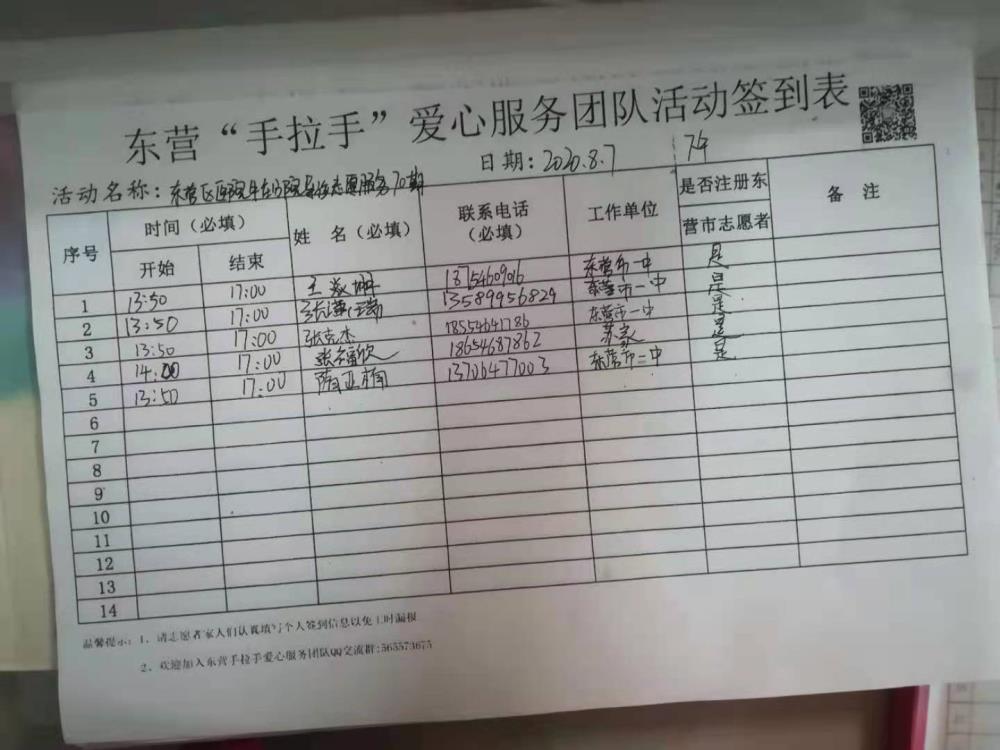 东营“手拉手”爱心服务团队活动签到表
日期：2020.8.7
活动名称：东营区医院 志愿服务70期
序号 时间（必填） 姓 名（必填） 联系电话（必填） 工作单位 是否注册东营市志愿者 备 注
开始 结束
1 13:50 17:00 王 13754609016 东营市一中 是
2 13:50 17:00 13589956829 东营市一中 是
3 13:50 17:00 张克杰 18554641786 东营市一中 是
4 14:00 17:00 张 欣 18654687862 是
5 13:50 17:00 薛亚楠 13706477003 东营市二中 是
6
7
8
9
10
11
12
13
14
温馨提示：1、请志愿者家人们认真填写个人签到信息以免工时漏报
2、欢迎加入东营手拉手爱心服务团队QQ交流群:565573675